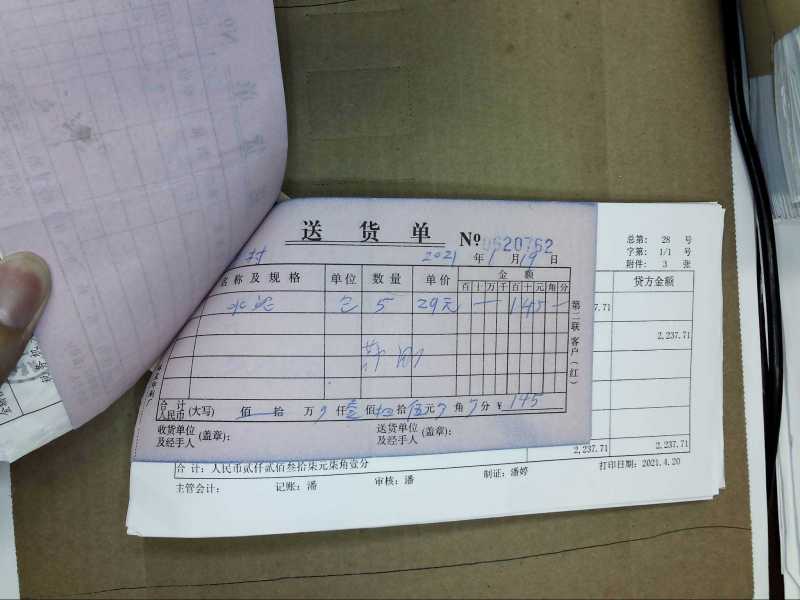 送货单 № 0620762
村 2021 年 1 月 19 日
名称及规格 单位 数量 单价 金额
百 十 万 千 百 十 元 角 分
水泥 包 5 29元 145
第二联 客户(红)
合计人民币(大写) 佰 拾 万 仟 壹 佰 肆 拾 伍 元 角 分 ¥ 145
收货单位及经手人(盖章): 送货单位及经手人(盖章):
总第: 28 号
字第: 1/1 号
附件: 3 张
贷方金额
7.71
2,237.71
2,237.71 2,237.71
合计:人民币贰仟贰佰叁拾柒元柒角壹分 打印日期:2021.4.20
主管会计: 记账:潘 审核:潘 制证:潘婷